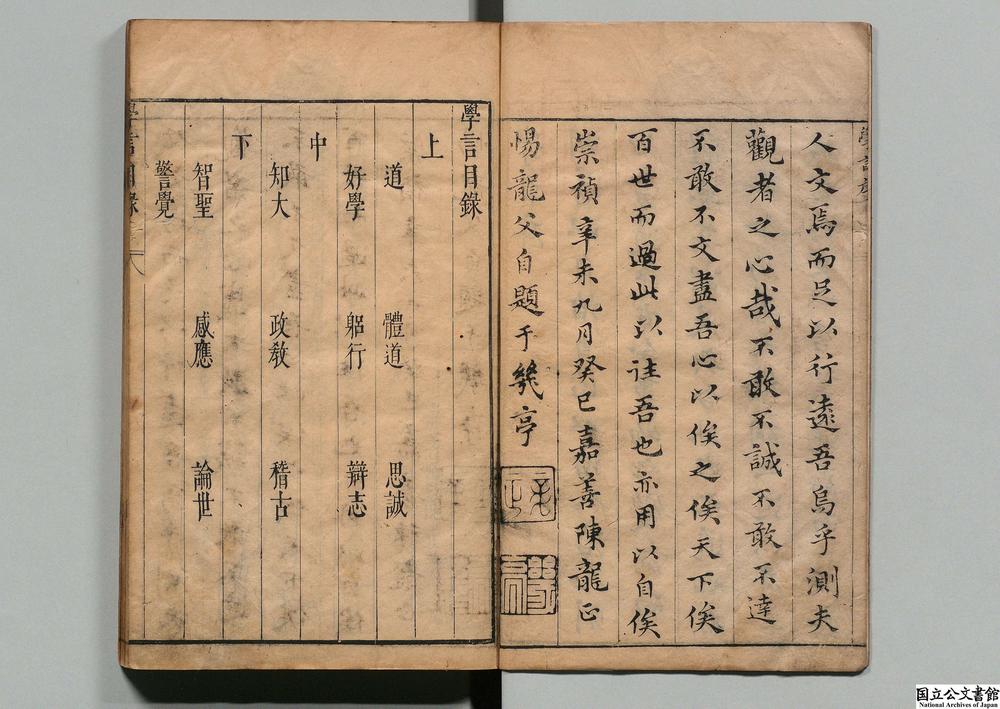 人文焉而足以行遠吾烏乎測夫
觀者之心哉不敢不誠不敢不達
不敢不文盡吾心以俟之俟天下俟
百世而過此以往吾也亦用以自俟
崇禎辛未九月癸巳嘉善陳龍正
惕龍父自題于幾亭
學言目錄
上
道 體道 思誠
好學 躬行 辯志
中
知大 政教 稽古
下
智聖 感應 論世
警覺
學言目錄
国立公文書館
National Archives of Japan